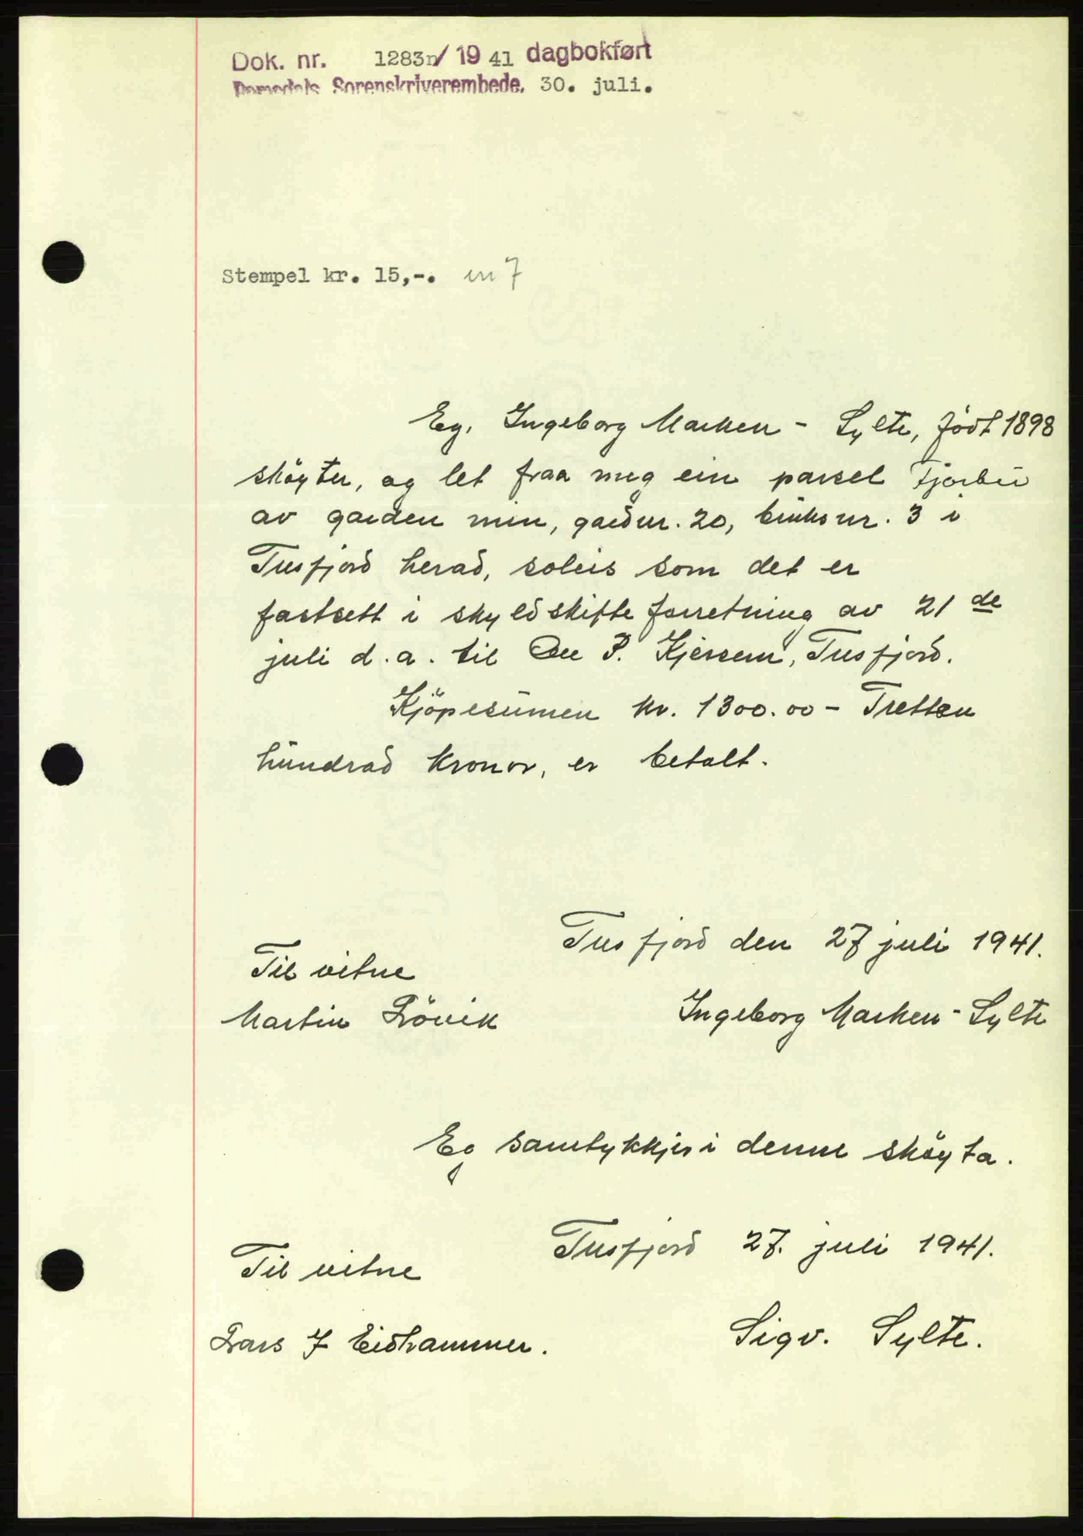 Dok. nr. 1283n/1941 dagbokført
Romsdals Sorenskriverembede. 30. juli.
Stempel kr. 15,-. m 7
Eg, Ingeborg Marken - Sylte, født 1898
skøyter, og let fraa meg ein parsel Fjorbu
av garden min, gardnr. 20, bruksnr. 3 i
Tusfjord herad, soleis som det er
fastsett i skyldskifteforretning av 21 de
juli d.a. til Ole P. Kjersem, Tusfjord.
Kjöpesumen kr. 1300.00 - Tretten
hundrad kronor, er betalt.
Tusfjord den 27 juli 1941.
Til vitne
Martin Lövik
Ingeborg Marken - Sylte
Eg samtykkjer i denne skøyta.
Tusfjord 27. juli 1941.
Til vitne
Lars J Eidhammer.
Sigv. Sylte.